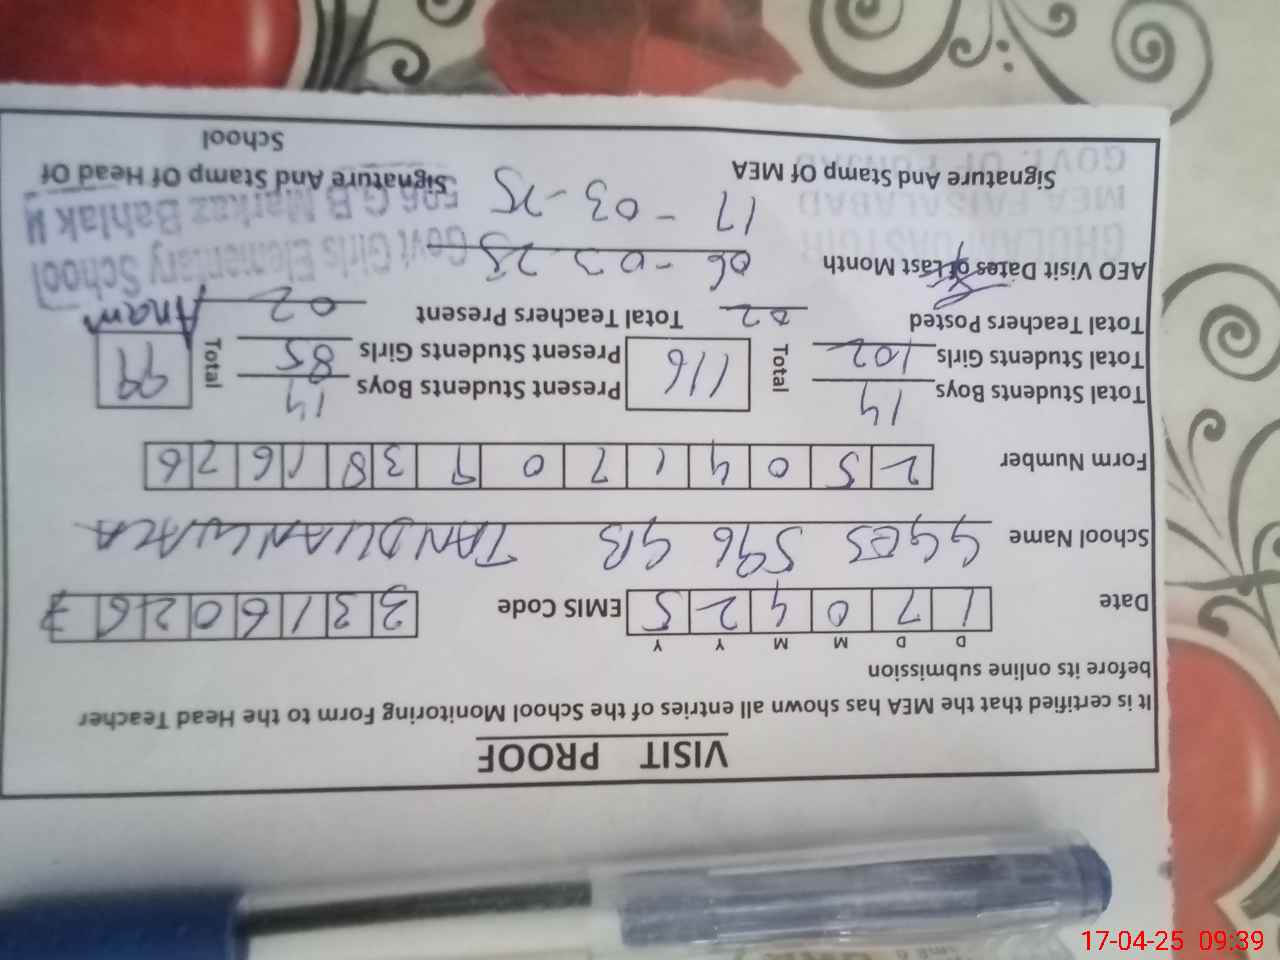 VISIT PROOF
It is certified that the MEA has shown all entries of the School Monitoring Form to the Head Teacher
before its online submission
D D M M Y Y
Date 1 7 0 4 2 5 EMIS Code 3 3 1 6 0 2 6 7
School Name GGES 596 GB TANDLIANWALA
Form Number 2 5 0 4 1 7 0 9 3 8 1 6 2 6
Total Students Boys 14 Total 116 Present Students Boys 14 Total 99
Total Students Girls 102 Present Students Girls 85
Total Teachers Posted 02 Total Teachers Present 02 Anam
AEO Visit Dates of Last Month 06-03-25
17-03-25
Govt Girls Elementary School
596 G.B Markaz Bahlak
MEA FAISALABAD
GOVT. OF PUNJAB
Signature And Stamp Of MEA Signature And Stamp Of Head Of
School
17-04-25 09:39